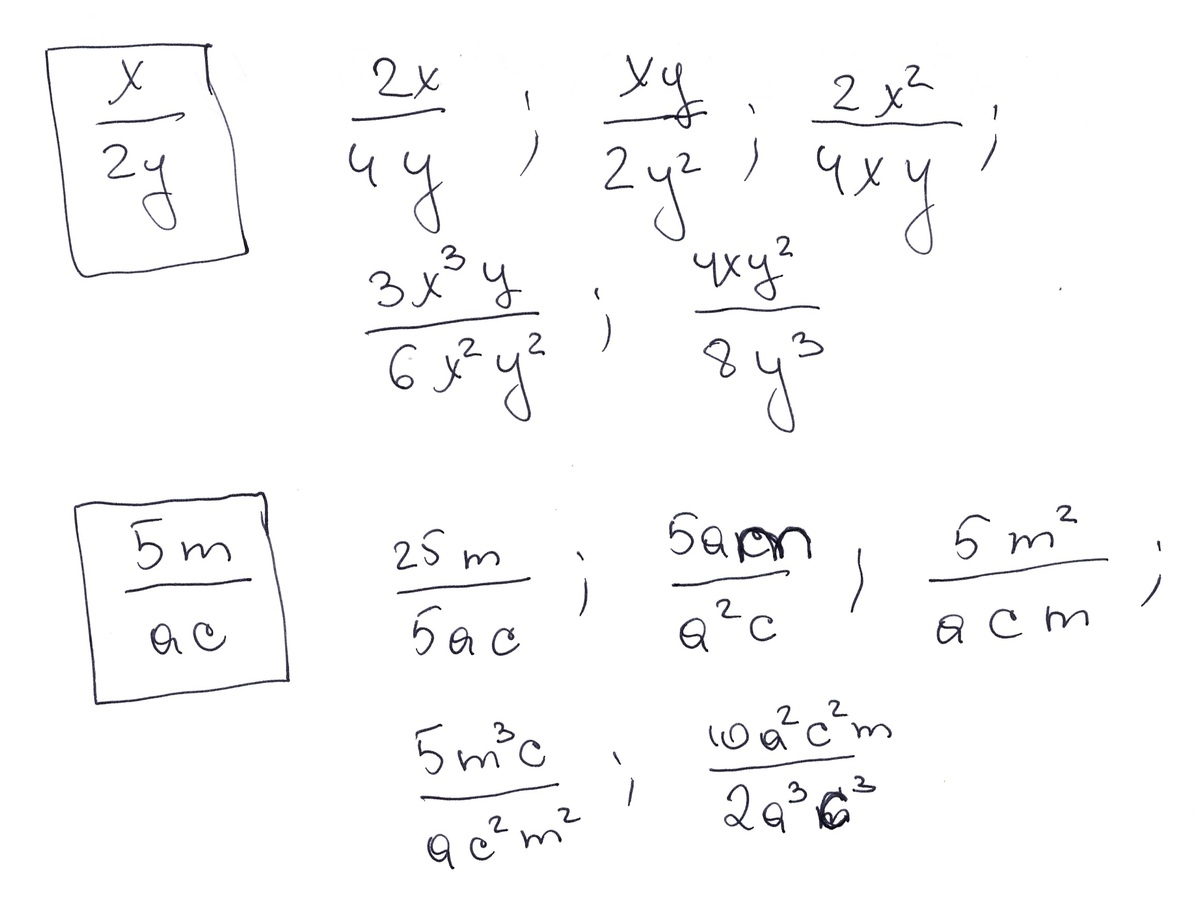 x/2y 2x/4y ; xy/2y² ; 2x²/4xy ;
3x³y/6x²y² ; 4xy²/8y³
5m/ac 25m/5ac ; 5am/a²c ; 5m²/acm ;
5m³c/ac²m² ; 10a²c²m/2a³c³